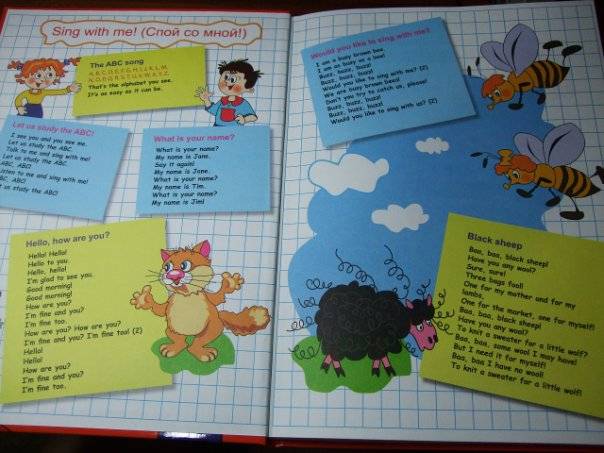 Sing with me! (Спой со мной!)
The ABC song
A B C D E F G H I J K L M
N O P Q R S T U V W X Y Z
That's the alphabet you see.
It's as easy as it can be.
Let us study the ABC!
I see you and you see me.
Let us study the ABC.
Talk to me and sing with me!
Let us study the ABC.
ABC, ABC!
Listen to me and sing with me!
ABC, ABC!
Let us study the ABC!
What is your name?
What is your name?
My name is Jane.
Say it again!
My name is Jane.
What is your name?
My name is Tim.
What is your name?
My name is Jim!
Hello, how are you?
Hello! Hello!
Hello to you.
Hello, hello!
I'm glad to see you.
Good morning!
Good morning!
How are you?
I'm fine and you?
I'm fine too.
How are you? How are you?
I'm fine and you? I'm fine too! (2)
Hello!
Hello!
How are you?
I'm fine and you?
I'm fine too.
Would you like to sing with me?
I am a busy brown bee.
I am as busy as a bee!
Buzz, buzz, buzz!
Buzz, buzz, buzz!
Would you like to sing with me? (2)
We are busy brown bees!
Don't you try to catch us, please!
Buzz, buzz, buzz!
Buzz, buzz, buzz!
Would you like to sing with us? (2)
Black sheep
Baa, baa, black sheep!
Have you any wool?
Sure, sure!
Three bags full!
One for my mother and for my
lambs,
One for the market, one for myself!
Baa, baa, black sheep!
Have you any wool?
To knit a sweater for a little wolf?
Baa, baa, some wool I may have!
But I need it for myself!
Baa, baa I have no wool!
To knit a sweater for a little wolf!